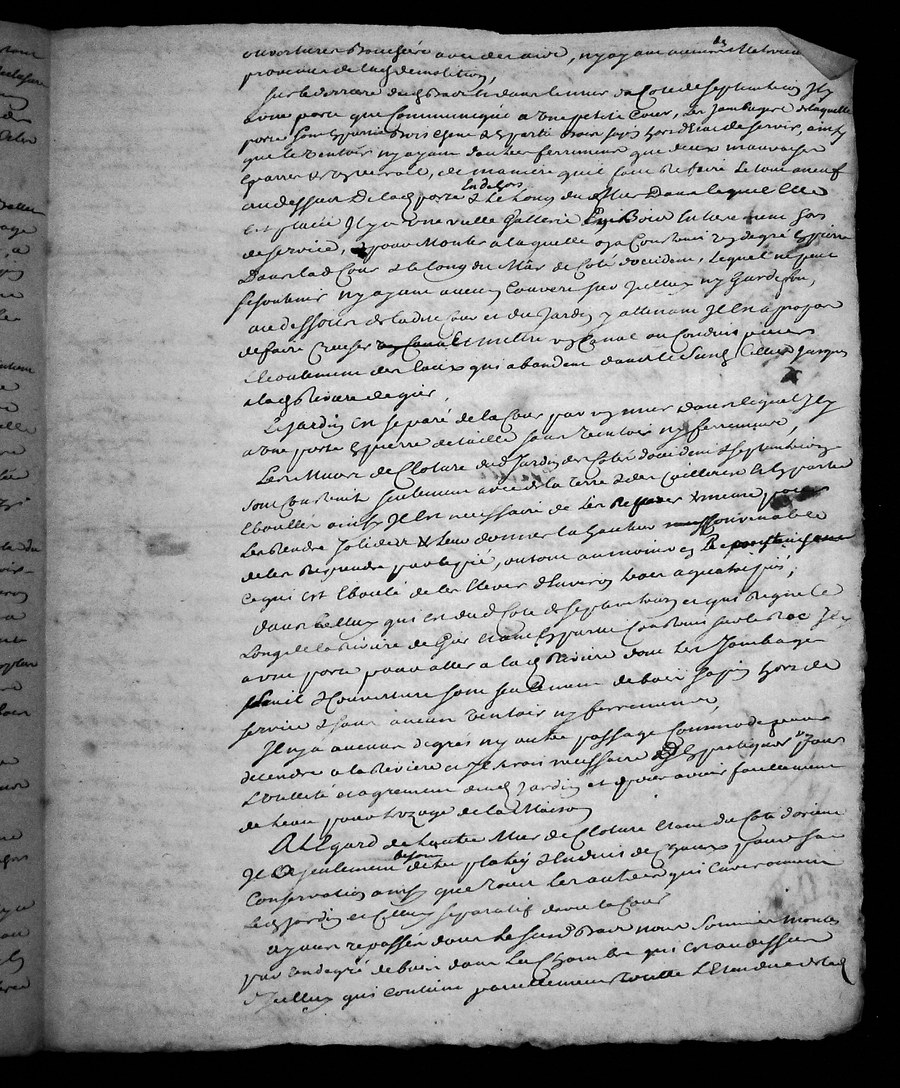 ouvertures Bouchéés avec des aix, ny ayant aucuns Materiaux
provenus de lad demolition,
Sur le derriere dud Bas et dans le mur du Coté de septentrion Jl y
a une porte que Communique a une petite Cour, les Jambages de laquelle
porte sont En partie Bois Chene & En partie Bois sapin hors d'Etat de servir, ainsy
que le Ventoir ny ayant dautres ferrements que deux mauvaises
Eparres & de maniere quil faut Refaire le tout aneuf
au dessus De lad porte En dehors & Le Long du Mur Dans lequel Elle
Est placéé Jl y a Une vielle Gallerie En Bois Entierement hors
de service, & pour Monter a laquelle on a Construit un degré En pierre
Dans lad Cour & le Long du Mur de Coté d'occident, Lequel ne peut
se soutenir ny ayant aucun Couvert sur Jcelluy ny Gardefou,
au dessous de ladite Cour et du Jardin y attenant Jl Est a propos
de faire Creuser et mettre un Canal ou Conduit pour
Ecoulement des Eaux qui abondent dans le Susd Cellier Jusques
a lad Riviere de gier,
Le Jardin Est separé de la Cour par un mur Dans lequel Jl y
a Une porte En pierre de taille sans Ventoir ny ferrements,
Les Murs de Cloture dud Jardin des Cotés d'occident & septentrion
sont Construit seulement avec de la terre & des Caillous & En partie
Eboullés ainsy Jl Est necessaire de les
Les Rendre solides & leur donner la hauteur Convenable
de les Reprendre par le pié, ou tout au moins
ce qui est Eboulé & de les Elever d'Environ trois a quatre piés,
Dans Celluy qui est du d Coté de septentrion et qui Regne le
Long de la Riviere de Gier Etant En partie Construit sur le Roc Jl y
a une porte pour aller a lad Riviere dont les Jambages
seuil & Couverture sont seulement de bois sapin hors de
service & sans aucun Ventoir ny ferrements,
Jl ny a aucun degrés ny autre passage Commode pour
decendre a la Riviere et Jl seroit necessaire d'En pratiquer Un pour
L'Utilité et agrement dud Jardin et pour avoir facilement
de leau pour Lusage de la Maison
A L'Egard de Lautre Mur de Cloture Etant du Coté d'orient
Jl a seulement besoin d'Etre platri & Enduit de Chaux pour sa
Conservation ainsy que tous les autres qui Environnent
Le d Jardin et Celluy separatif d'avec la Cour
ayant repassé dans le Susd Bas nous Sommes montés
par un degré de bois dans La Chambre qui Est au dessus
d'Jcelluy qui Contient pareillement toutte L'Etendue de lad